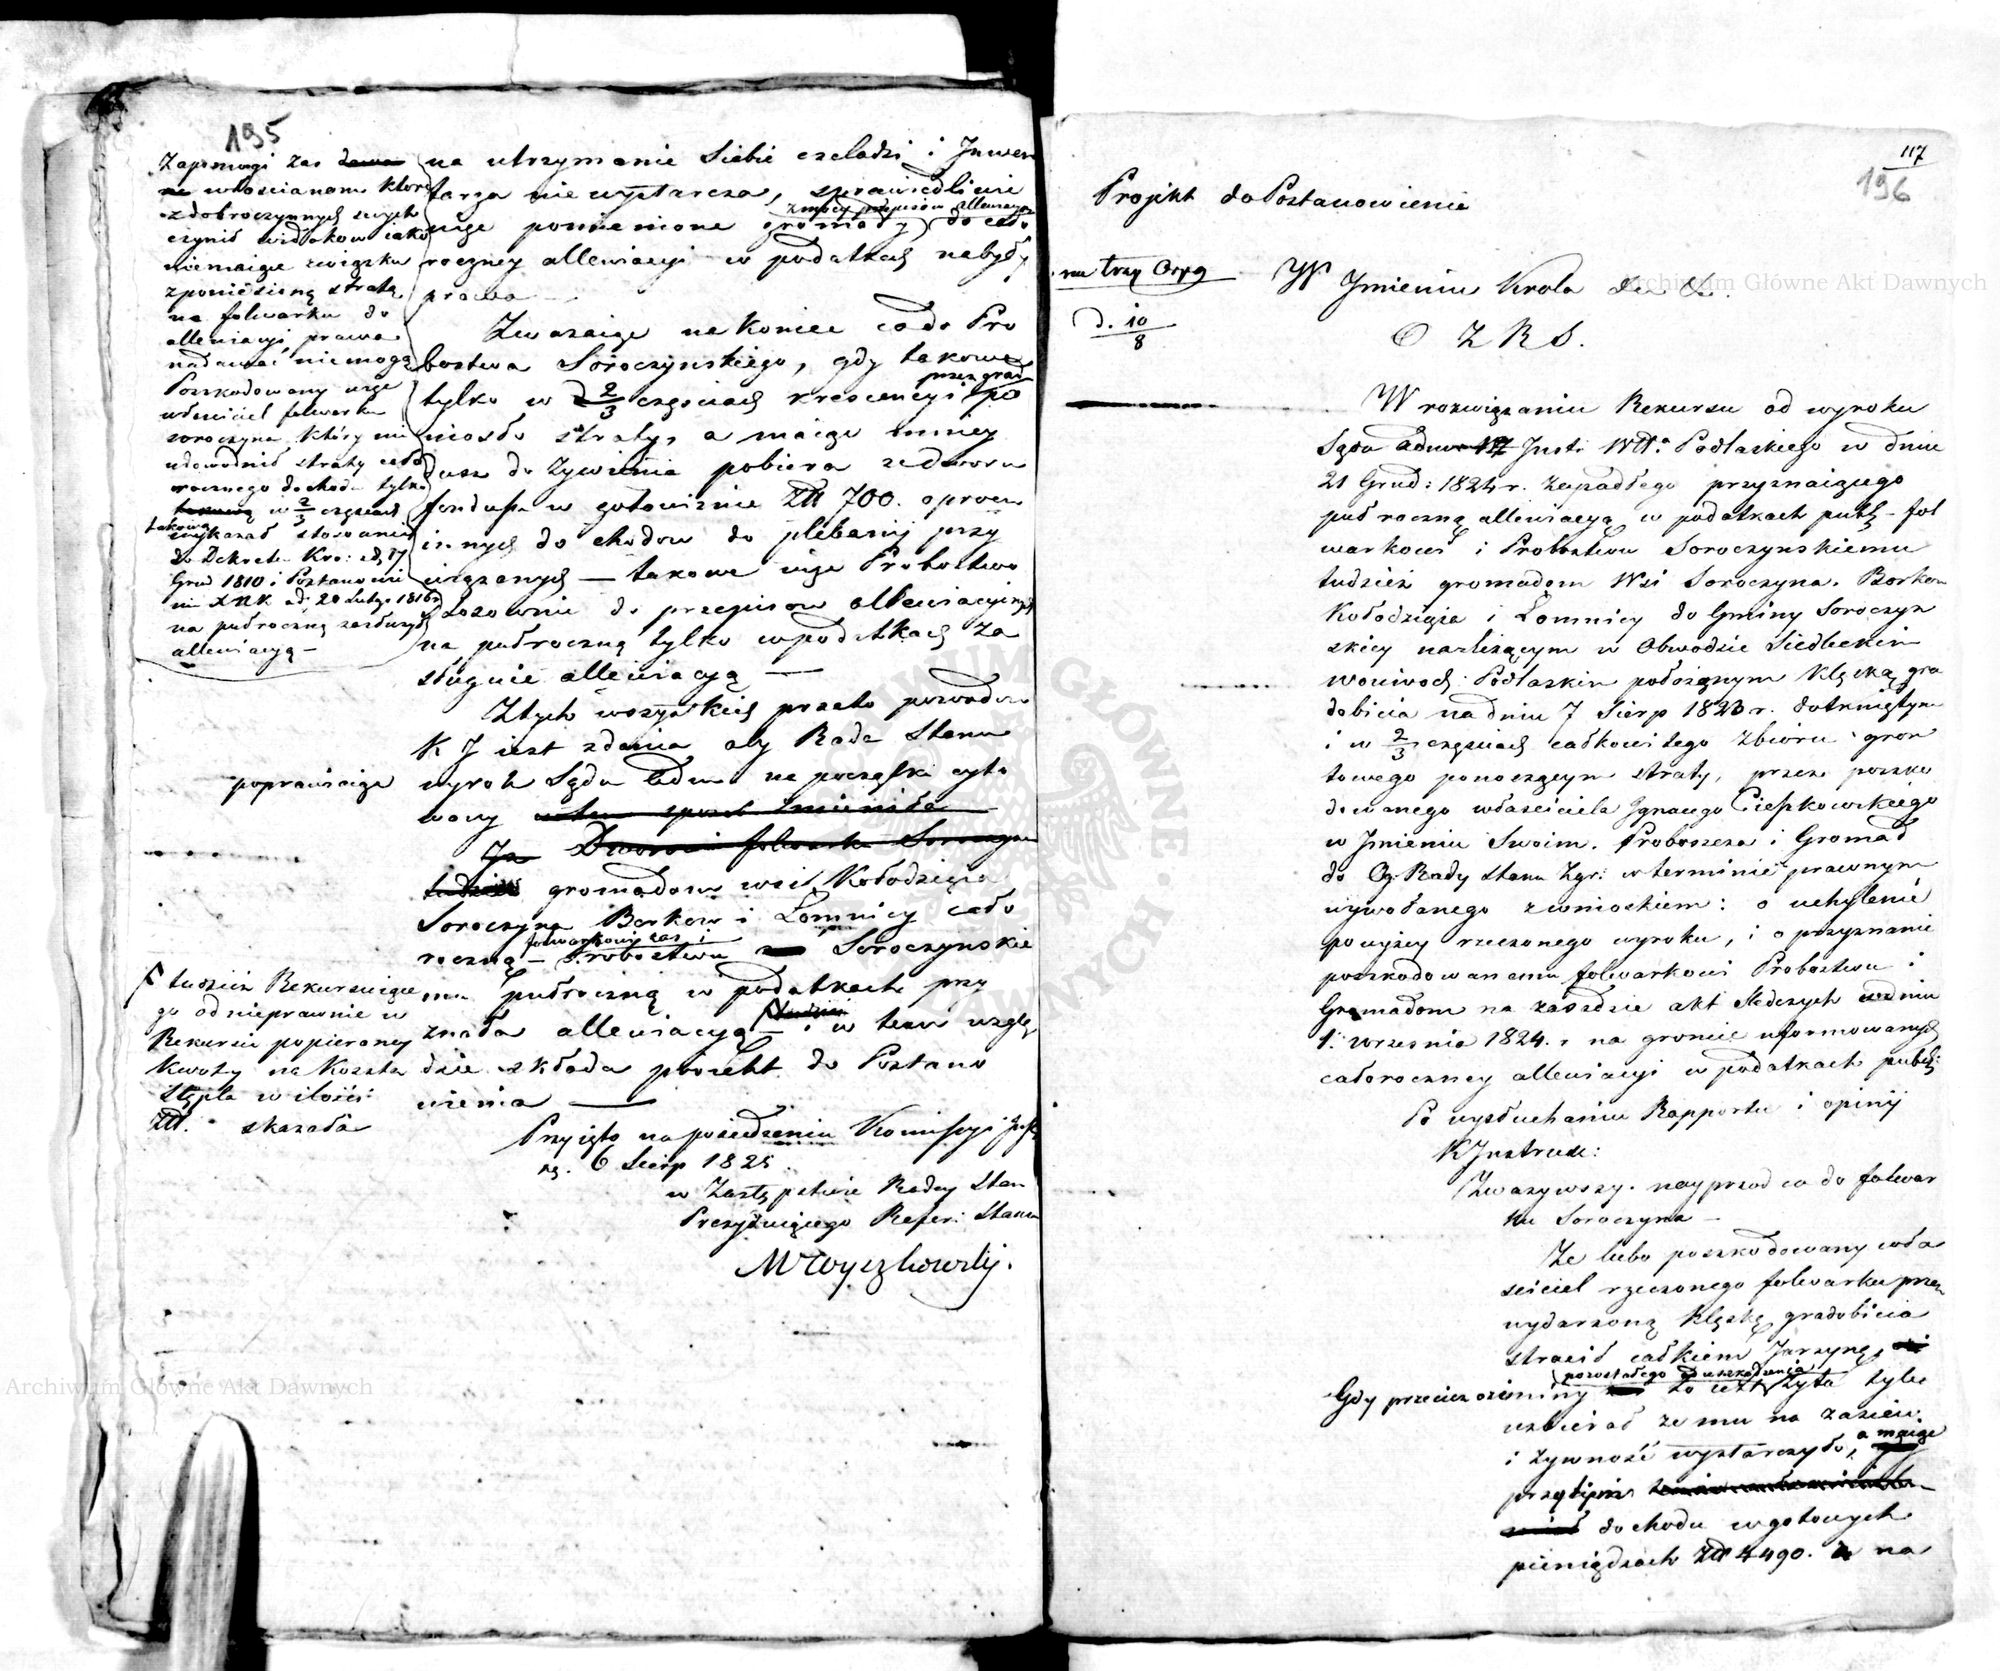 195
Zapomogi zas
włoscianom ktore
z dobroczynnych swych
czynił widokow iako
niemaiące związku
z poniesioną stratą
na folwarku do
allewiacyi prawa
nadawać niemogą
Poszkodowany więc
właściciel folwarku
Soroczyna który nie
udowodnił straty cało
rocznego dochodu tylko
w 2/3 częściach
takową
wykazał stosownie
do Dekretu Kro: z d. 17
Grud 1810 i Postanowie
nia XNK z d: 20 Lutego 1816 r
na pułroczną zasłużył
allewiacyą —
na utrzymanie Siebie czeladzi i Inwen
tarza nie wystarcza, sprawiedliwie
więc pomienione gromady do cało
z mocy przepisow allewiacyi
roczney allewiacyi w podatkach nabyły
prawa —
Zwazaiąc na koniec co do Pro
bostwa Soroczynskiego, gdy takowe
przez grad
tylko w 2/3 częściach krescencyi po
niosło straty, a maiąc mniey
dusz do żywienia pobiera ze dworu
fundusz w gotowiznie Złł 700. oprocz
innych dochodow do plebanij przy
wiązanych — takowe więc Probostwo
stosownie do przepisow allewiacyinych
na pułroczną tylko w podatkach za
sługuie allewiacyą —
Z tych wszystkich przeto powodow
K J iest zdania aby Rada Stanu
wyrok Sądu Adm na początku cyto
poprawiaiąc
wany
Dworowi folwarku Soroczyn
gromadom wsi Kołodzieża
Soroczyna Borkow i Łomnicy cało
folwarkowi zas i
roczną — Probostwu Soroczynskie
mu pułroczną w podatkach przy
znała allewiacyą — i w tem wzglę
dzie składa proiekt do Postano
wienia —
tudzież Rekursuiące
go od nieprawnie w
Rekursie popieraney
kwoty na Koszta
Stępla w ilości
Złł. skazała
Przyięto na posiedzeniu Komissyi Just
6 Sierp 1825
w Zastępstwie Radcy Stan
Prezyduiącego Refer: Stanu
MWyczkowski.
117
196
Projekt do Postanowienia
na trzy Oryg
d. 10/8
W Imieniu Krola &c &c.
O Z R S.
W rozwiązaniu Rekursu od wyroku
Sądu Adm Just: Wtwa Podlaskiego w dniu
21 Grud: 1824 r. zapadłego przyznaiącego
pułroczną allewiacyą w podatkach publ - fol
warkowi i Probostwu Soroczynskiemu
tudzież gromadom Wsi Soroczyna. Borkow
Kołodziąża i Łomnicy do Gminy Soroczyn
skiey należącym w Obwodzie Siedleckim
Woiwodz: Podlaskim położonym Klęską gra
dobicia na dniu 7 Sierp 1823 r. dotkniętym
i w 2/3 częściach całkowitego zbioru gron
towego ponoszącym straty, przez poszko
dowanego właściciela Ignacego Cieszkowskiego
w Imieniu Swoim. Proboszcza i Gromad
do Og: Rady Stanu Zgr: w terminie prawnym
wywołanego z wnioskiem: o uchylenie
powyżey rzeczonego wyroku, i o przyznanie
poszkodowanemu folwarkowi Probostwu i
Gromadom na zasadzie akt śledczych w dniu
1. września 1824. r na groncie uformowanych
całoroczney allewiacyi w podatkach publ:
Po wysłuchaniu Rapportu i opinij
K Instruk:
Zwazywszy. nayprzod co do folwar
ku Soroczyna —
Że lubo poszkodowany wła
ściciel rzeczonego folwarku przez
wydarzoną klęskę gradobicia
stracił całkiem Jarzynę,
pozostałego od uszkodzenia
Gdy przecież oziminy to iest żyta tyle
uzbierał że mu na zasiew
i żywność wystarczyło, a maiąc
przytym
dochodu w gotowych
pieniądzach Złł 4490. na